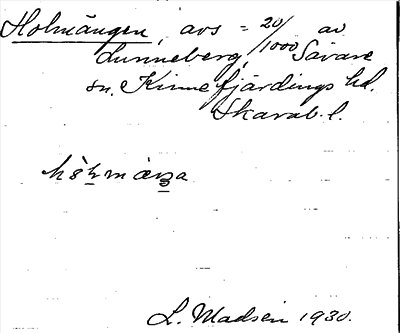 Holmängen, avs = 20/1000 av
Lunneberg, Sävare
sn. Kinnefjärdings hd.
Skarab. l.
L. Madsén 1930.